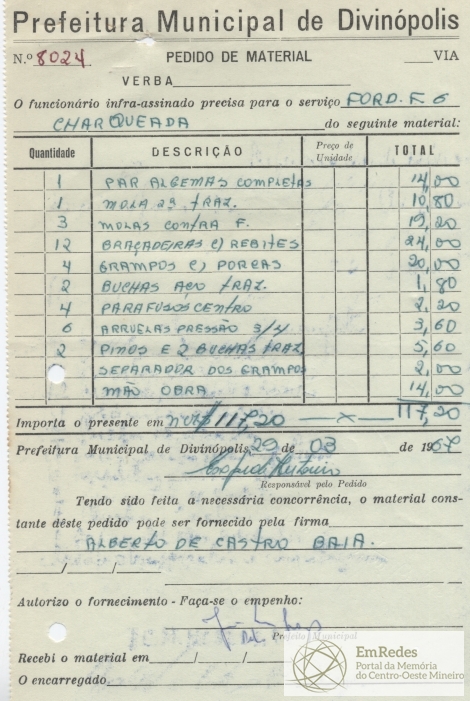 Prefeitura Municipal de Divinópolis
N.º 8024 PEDIDO DE MATERIAL VIA
VERBA
O funcionário infra-assinado precisa para o serviço FORD. F. 6
CHARQUEADA do seguinte material:
Quantidade DESCRIÇÃO Preço de Unidade TOTAL
1 PAR ALGEMAS COMPLETAS 14,00
1 MOLA 2ª TRAZ. 10,80
3 MOLAS CONTRA F. 19,20
12 BRAÇADEIRAS C/ REBITES 24,00
4 GRAMPOS C/ PORCAS 20,00
2 BUCHAS AÇO TRAZ. 1,80
4 PARAFUSOS CENTRO 2,20
6 ARRUELAS PRESSÃO 3/4 3,60
2 PINOS E 2 BUCHAS TRAZ 5,60
SEPARADOR DOS GRAMPOS 2,00
MÃO OBRA 14,00
Importa o presente em NCR$ 117,20 —x— 117,20
Prefeitura Municipal de Divinópolis, 29 de 03 de 1967
Responsável pelo Pedido
Tendo sido feita a necessária concorrência, o material cons-
tante dêste pedido pode ser fornecido pela firma
ALBERTO DE CASTRO BAIA.
/ /
Autorizo o fornecimento - Faça-se o empenho:
Prefeito Municipal
Recebi o material em / /
O encarregado
EmRedes
Portal da Memória
do Centro-Oeste Mineiro